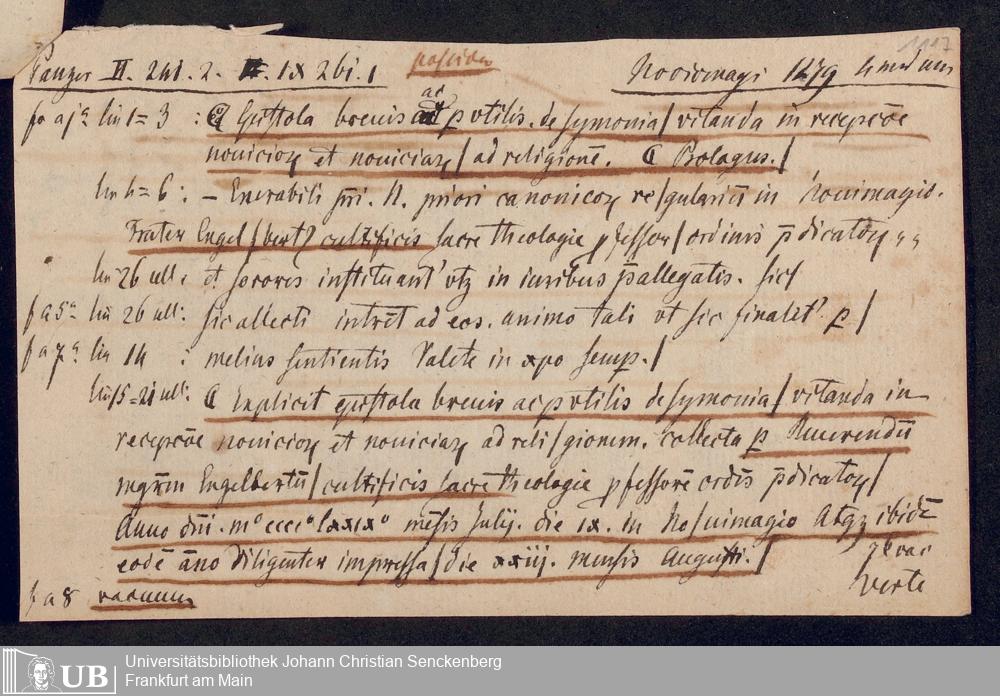 1117
Panzer II. 241. 2. IX 261. 1 Noviomagi 1479
fo aja lin 1=3 : Epistola breuis ac putilis. de symonia / vitanda in recepcōe
nouicioꝝ et nouiciaꝝ / ad religionē. Prologus. /
lin 4=6 : – Enerabili priori canonicoꝝ re/gulariū in Nouimagio.
Frater Engel/bertꝰ cultificis sacre theologie ꝓfessor / ordinis p̄dicatoꝝ
lin 26 ult: et sorores instituant' in iuribus p̄allegatis. sic/
f a5a lin 26 ult: sic allecti intrēt ad eos. animo tali vt sic finalit' p /
f a7a lin 14 : melius sentientis Valete in xpo semp. /
lin 15=21 ult: Explicit epistola breuis ac putilis de symonia / vitanda in
recepcōe nouicioꝝ et nouiciaꝝ ad reli/gionem. collecta p Reuerendū
mgrm Engelbertū / cultificis sacre theologie ꝓfessorē ordīs p̄dicatoꝝ /
Anno dni. mº ccccº lxxixº mēsis Julij. die ix. in No/uimagio Atqꝫ ibidē
eodē āno diligenter impressa / die xxiij. mensis Augusti. /
verte
f a8 vacuum
UB
Universitätsbibliothek Johann Christian Senckenberg
Frankfurt am Main